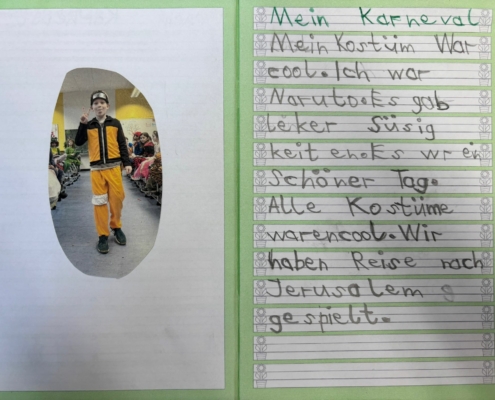 Mein Karneval
Mein Kostüm War
cool. Ich war
Naruto. Es gab
leker Süsig
keit en. Es wr ein
Schöner Tag.
Alle Kostüme
waren cool. Wir
haben Reise nach
Jerusalem
gespielt.